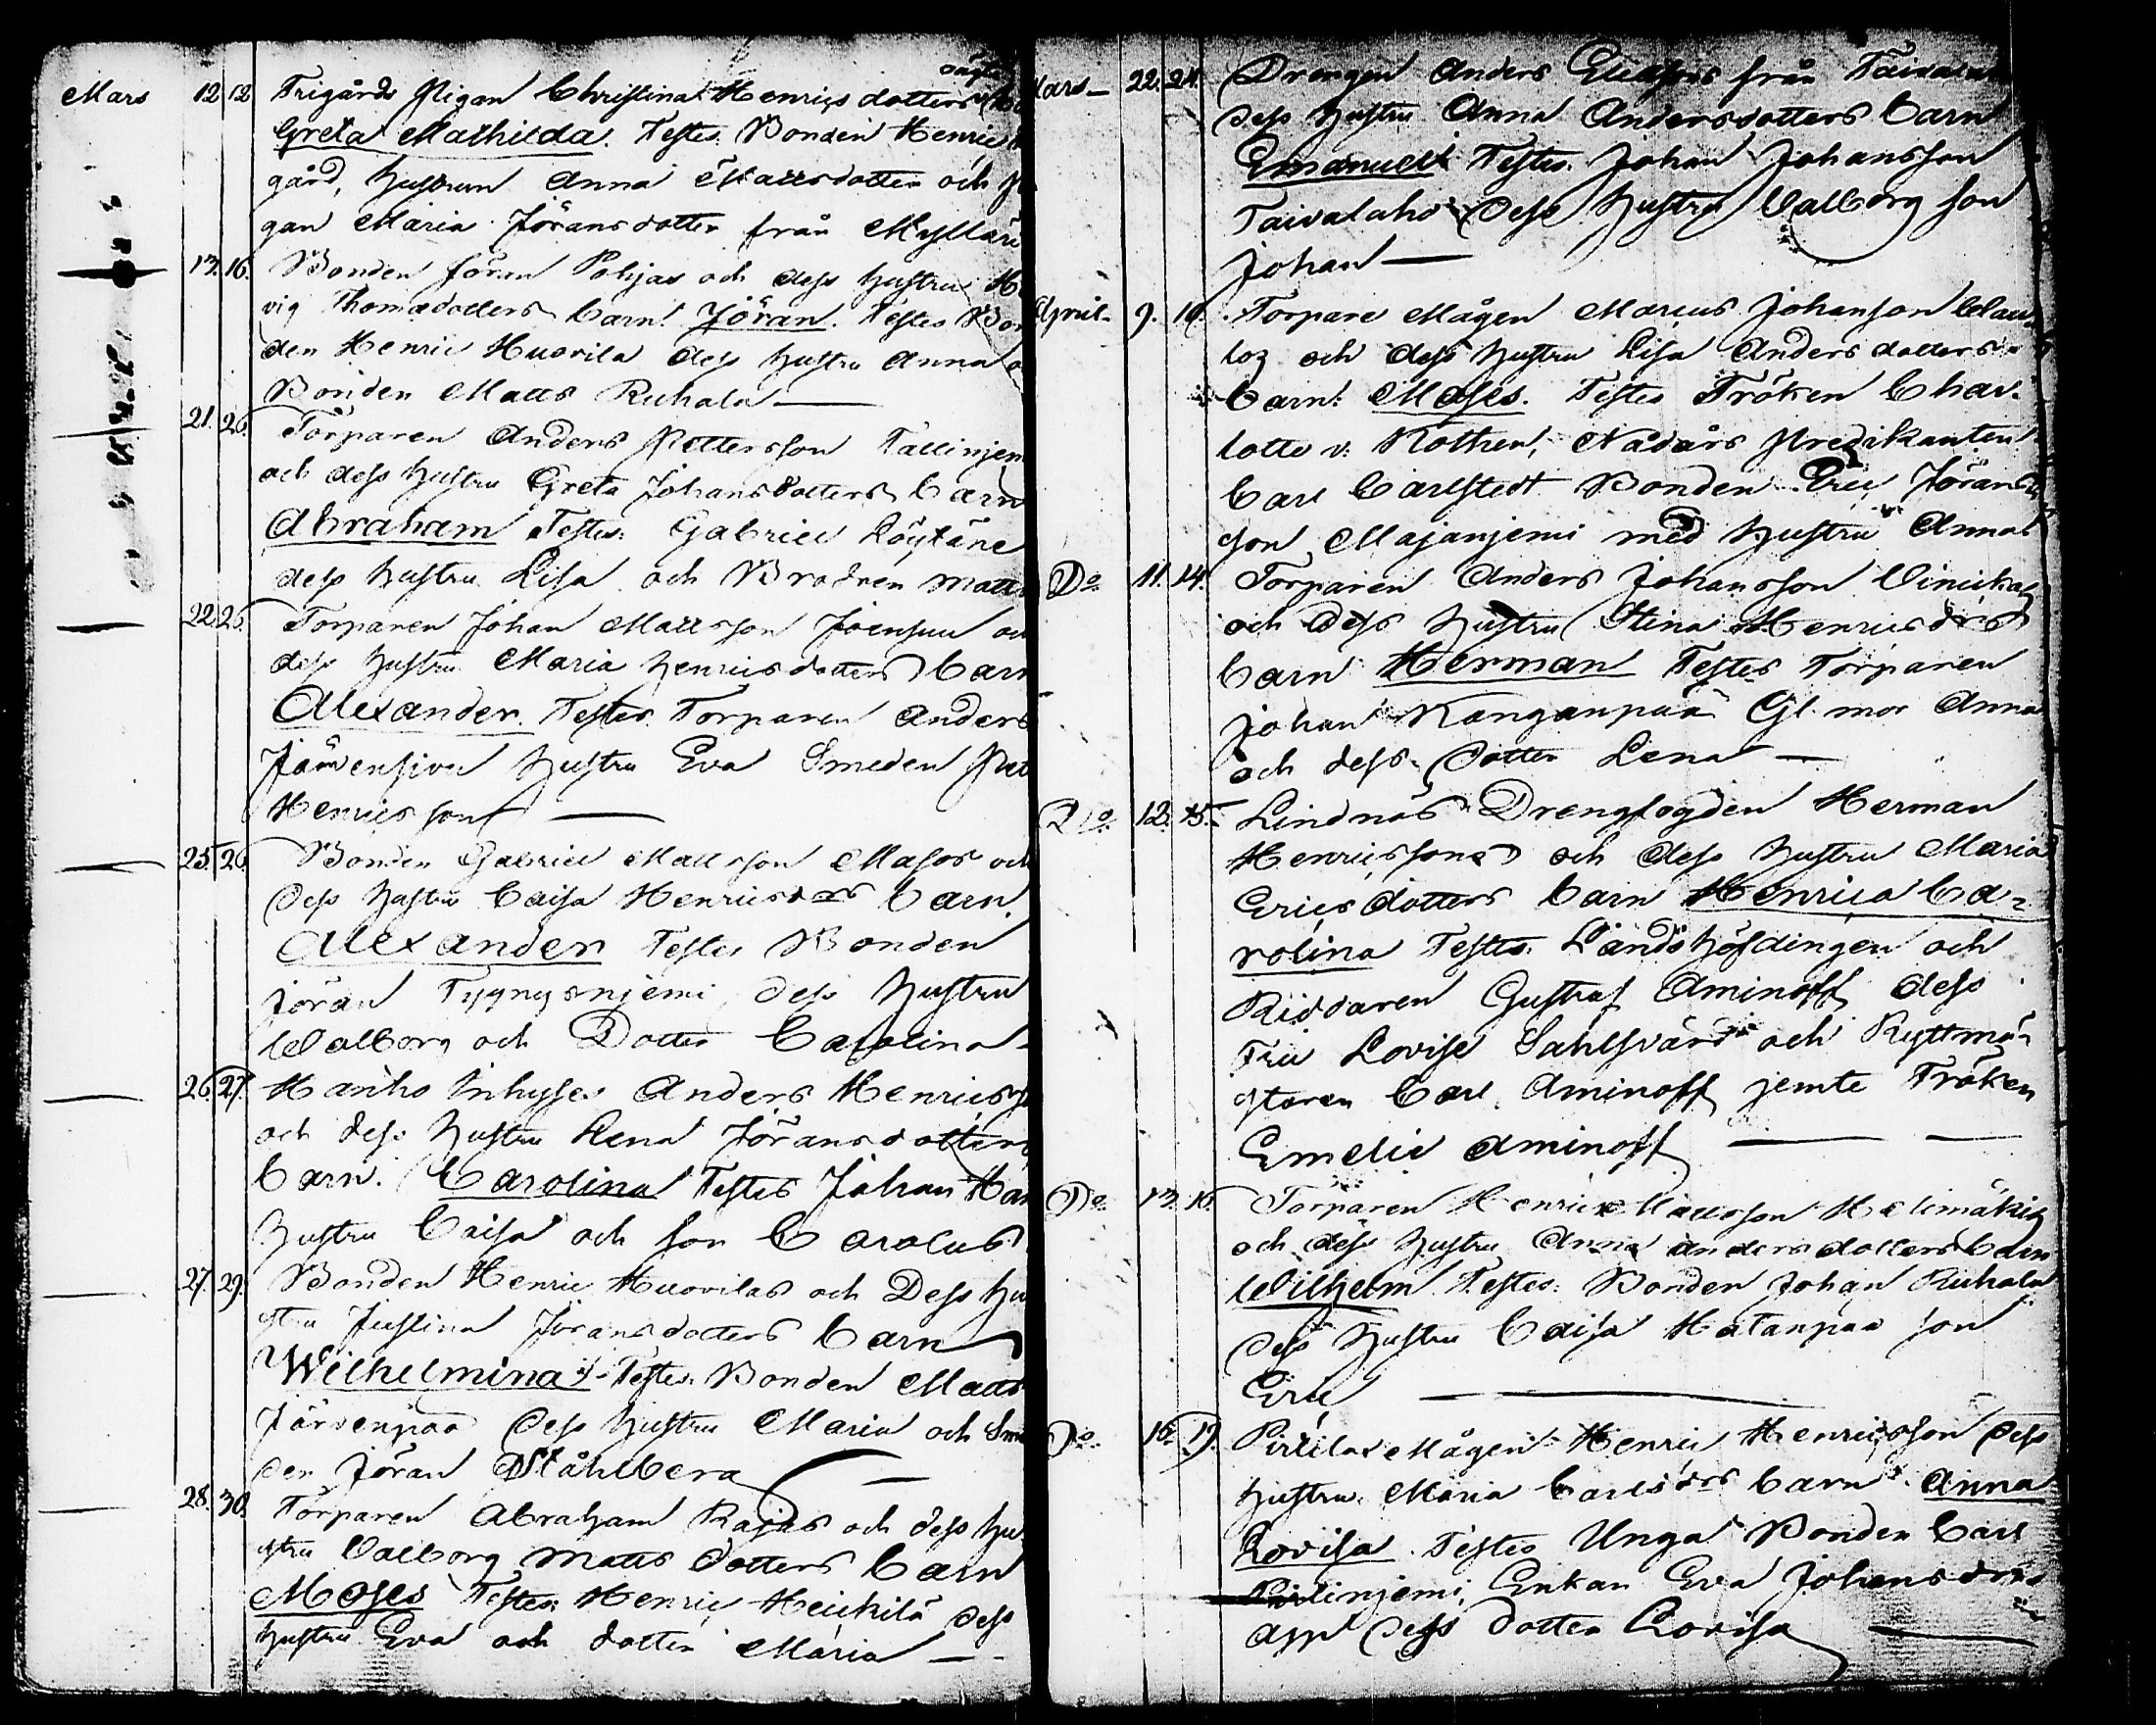 Mars 12 12 Frigårds Pigan Christina Henrics dotters
Greta Mathilda. Testes Bonden Henric
gård, hustrun Anna Mattsdotter och Pi
gan Maria Jöransdotter från Mylläri
13. 16. Bonden Jöran Pohjas och dess hustru He
vig Thomadotters barn: Jöran. Testes Bon
den Henric Huovila dess hustru Anna o
Bonden Matts Ruhala —
21. 26. Torparen Anders Pettersson Tallinjem
och dess hustru Greta Johansdotters barn
Abraham Testes: Gabriel Löytäne
dess hustru Lisa och Brodren Matts
22. 25. Torparen Johan Mattsson Joensuu och
dess hustru Maria Henricsdotters barn
Alexander. Testes Torparen Anders
Järvensivu hustru Eva Smeden Pet
Henricsson —
25. 26. Bonden Gabriel Mattsson Masos och
dess hustru Caisa Henricsdrs barn
Alexander Testes Bonden
Jöran Tygnysnjemi dess hustru
Walborg och Dotter Carolina
26. 27. Hanho Inhyses Anders Henricss
och dess hustru Lena Jöransdotters
barn. Carolina Testes Johan Han
hustru Caisa och son Carolus
27. 29. Bonden Henric Huovilas och Dess hu
stru Justina Jöransdotters barn
Wilhelmina Testes. Bonden Matts
Järvenpää dess hustru Maria och Sme
den Jöran Ståhlberg —
28. 30. Torparen Abraham Rajas och dess hu
stru Valborg Matts dotters barn
Moses Testes: Henric Heickilä dess
hustru Eva och dotter Maria —
Mars — 22. 24. Drengen Anders Eliassons från Taivalah
dess hustru Anna Andersdotters barn
Emanuel Testes. Johan Johansson
Taivalaho dess hustru Valborg son
Johan —
April — 9. 10. Torpare Mågen Marcus Johanson
och dess hustru Lisa Anders dotters
barn: Moses. Testes Fröken Char-
lotte v. Kothen, Nådårs Predikanten
Carl Carlstedt Bonden Eric Jörans
son Majanjemi med hustru Anna
Do. 11. 14. Torparen Anders Johansson
och Dess hustru Stina Henricsdrs
barn Herman Testes Torparen
Johan Kanganpää Gl. mor Anna
och dess Dotter Lena —
Do. 12. 15. Lindnäs Drengfogden Herman
Henricssons och dess hustru Maria
Erics dotters barn Henrica Ca-
rolina Testes. Landshöfdingen och
Riddaren Gustaf Aminoff dess
Fru Lovise och Ryttmä-
staren Carl Aminoff jemte Fröken
Emelie Aminoff —
Do. 13. 16. Torparen Henric Mattsson
och dess hustru Anna Andersdotters barn
Wilhelm Testes: Bonden Johan Ruhala
dess hustru Caisa Hatanpää son
Eric —
Do. 16. 19. Pirilas Mågen Henric Henricsson dess
hustru. Maria Carlsdrs barn Anna
Lovisa. Testes Unga Bonden Carl
Enkan Eva Johansdrs
dess dotter Lovisa —